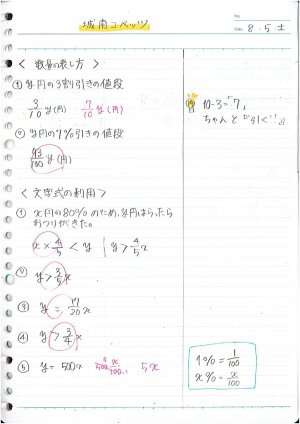 城南コベッツ
No.
Date 8.5.土
〈 数量の表し方 〉
① y円の3割引きの値段
3/10 y(円) 7/10 y(円)
② y円の7%引きの値段
93/100 y(円)
10-3=「7」
ちゃんと“引く”!!
〈文字式の利用〉
① x円の80%のため、y円はらったら
おつりがきた。
x × 4/5 < y | y > 4/5 x
② y > 3/5 x
③ y = 17/20 x
④ y > 3/4 x
⑤ y = 500x 5x
1% = 1/100
x% = x/100